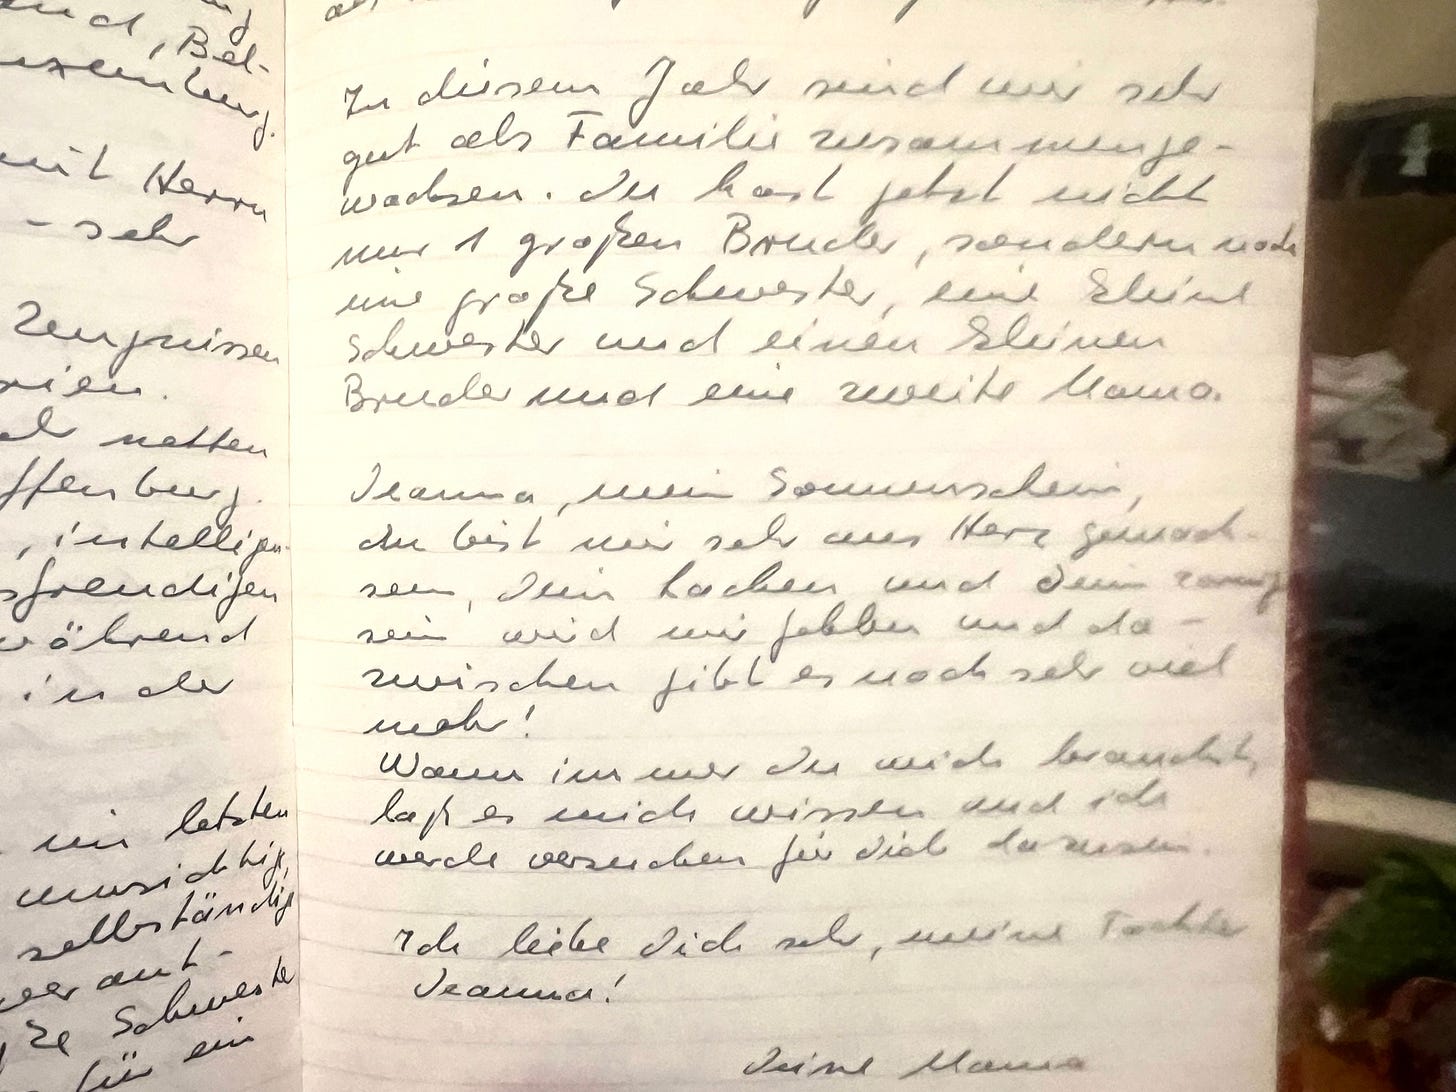 and, Bel-
uxemburg.
mit Herrn
- sehr
Zeugnissen
rien.
netten
ffenburg.
, intelligen-
sfreudigen
während
in der
im letzten
umsichtig,
selbständig,
verant-
Schwester
für ein
In diesem Jahr sind wir sehr
gut als Familie zusammenge-
wachsen. Du hast jetzt nicht
nur 1 großen Bruder, sondern noch
eine große Schwester, eine kleine
Schwester und einen kleinen
Bruder und eine zweite Mama.
Jeanna, mein Sonnenschein,
du bist mir sehr ans Herz gewach-
sen, Dein Lachen und Dein zornig
sein wird mir fehlen und da-
zwischen gibt es noch sehr viel
mehr!
Wann immer Du mich brauchst,
laß es mich wissen und ich
werde versuchen für Dich dazusein.
Ich liebe Dich sehr, meine Tochter
Jeanna!
Deine Mama